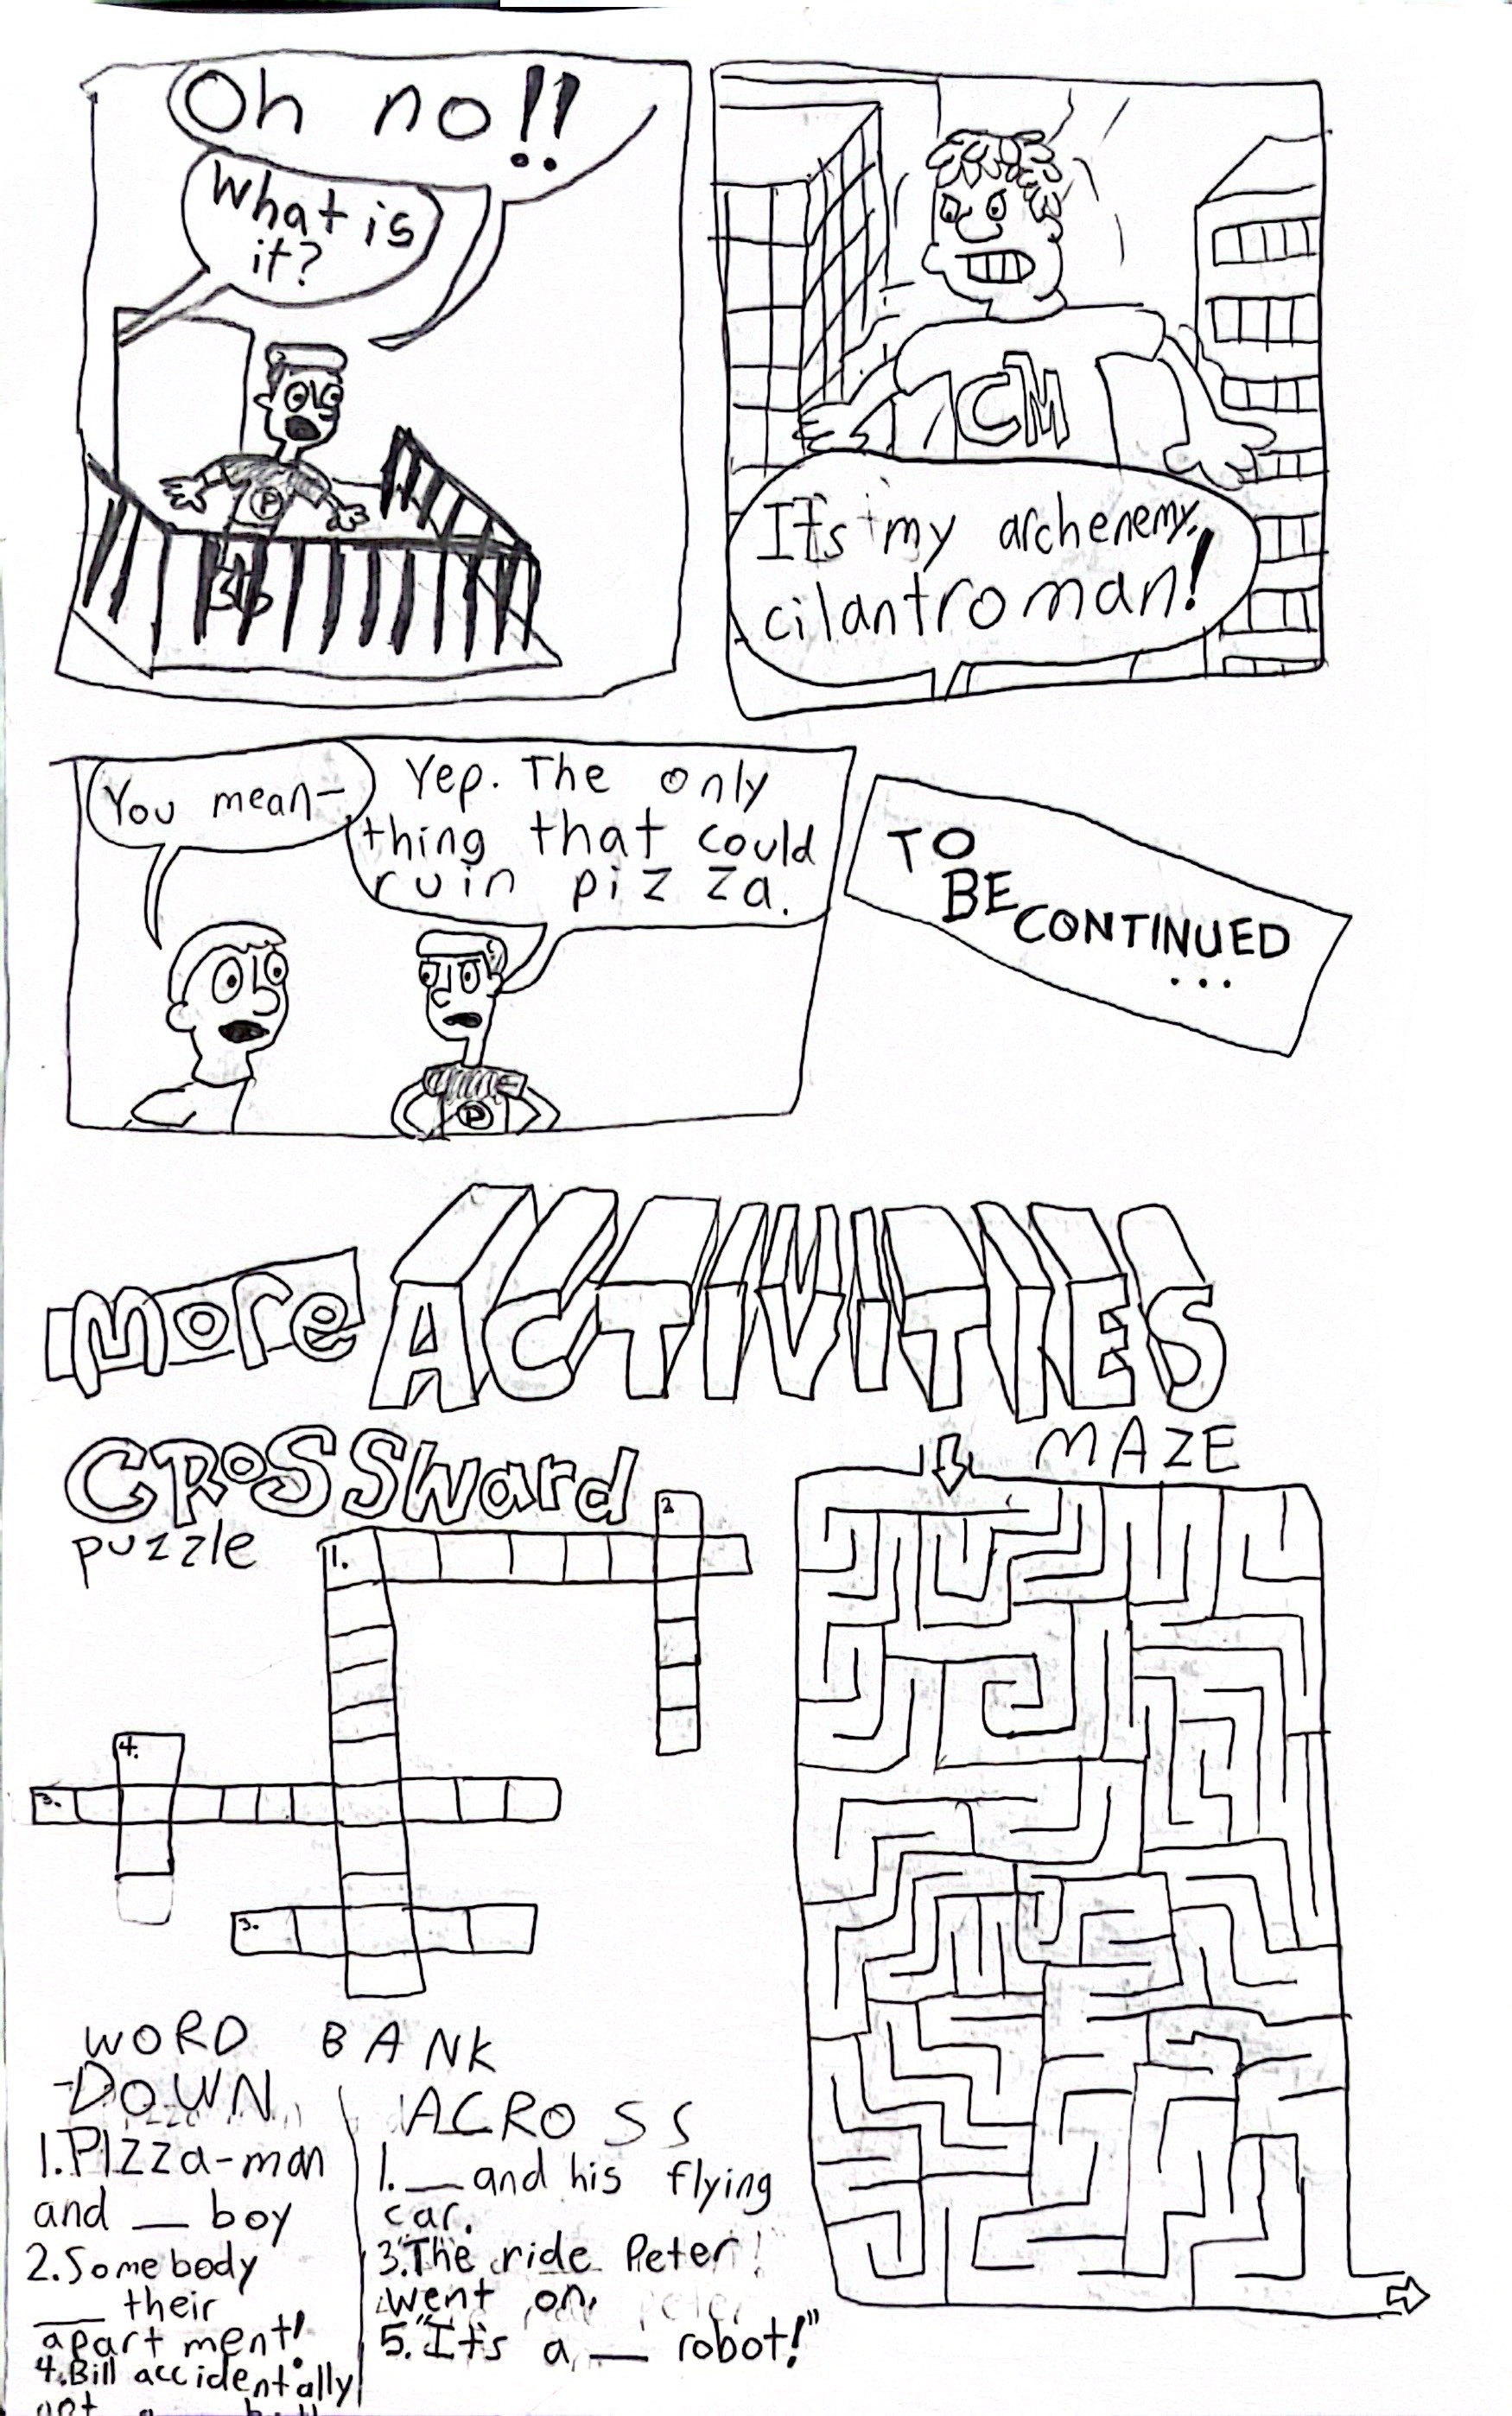 Oh no!!
What is
it?
P
CM
It's my archenemy,
cilantro man!
You mean-
Yep. The only
thing that could
ruin pizza.
P
TO
BE
CONTINUED
...
more ACTIVITIES
CROSSward
puzzle
MAZE
1.
2
4.
3.
3.
WORD BANK
DOWN
1. PIZZa-man
and __ boy
2. Somebody
__ their
apartment!
4. Bill accidentally
got a
ACROSS
1. __ and his flying
car.
3. The ride Peter
went on.
5. "It's a __ robot!"